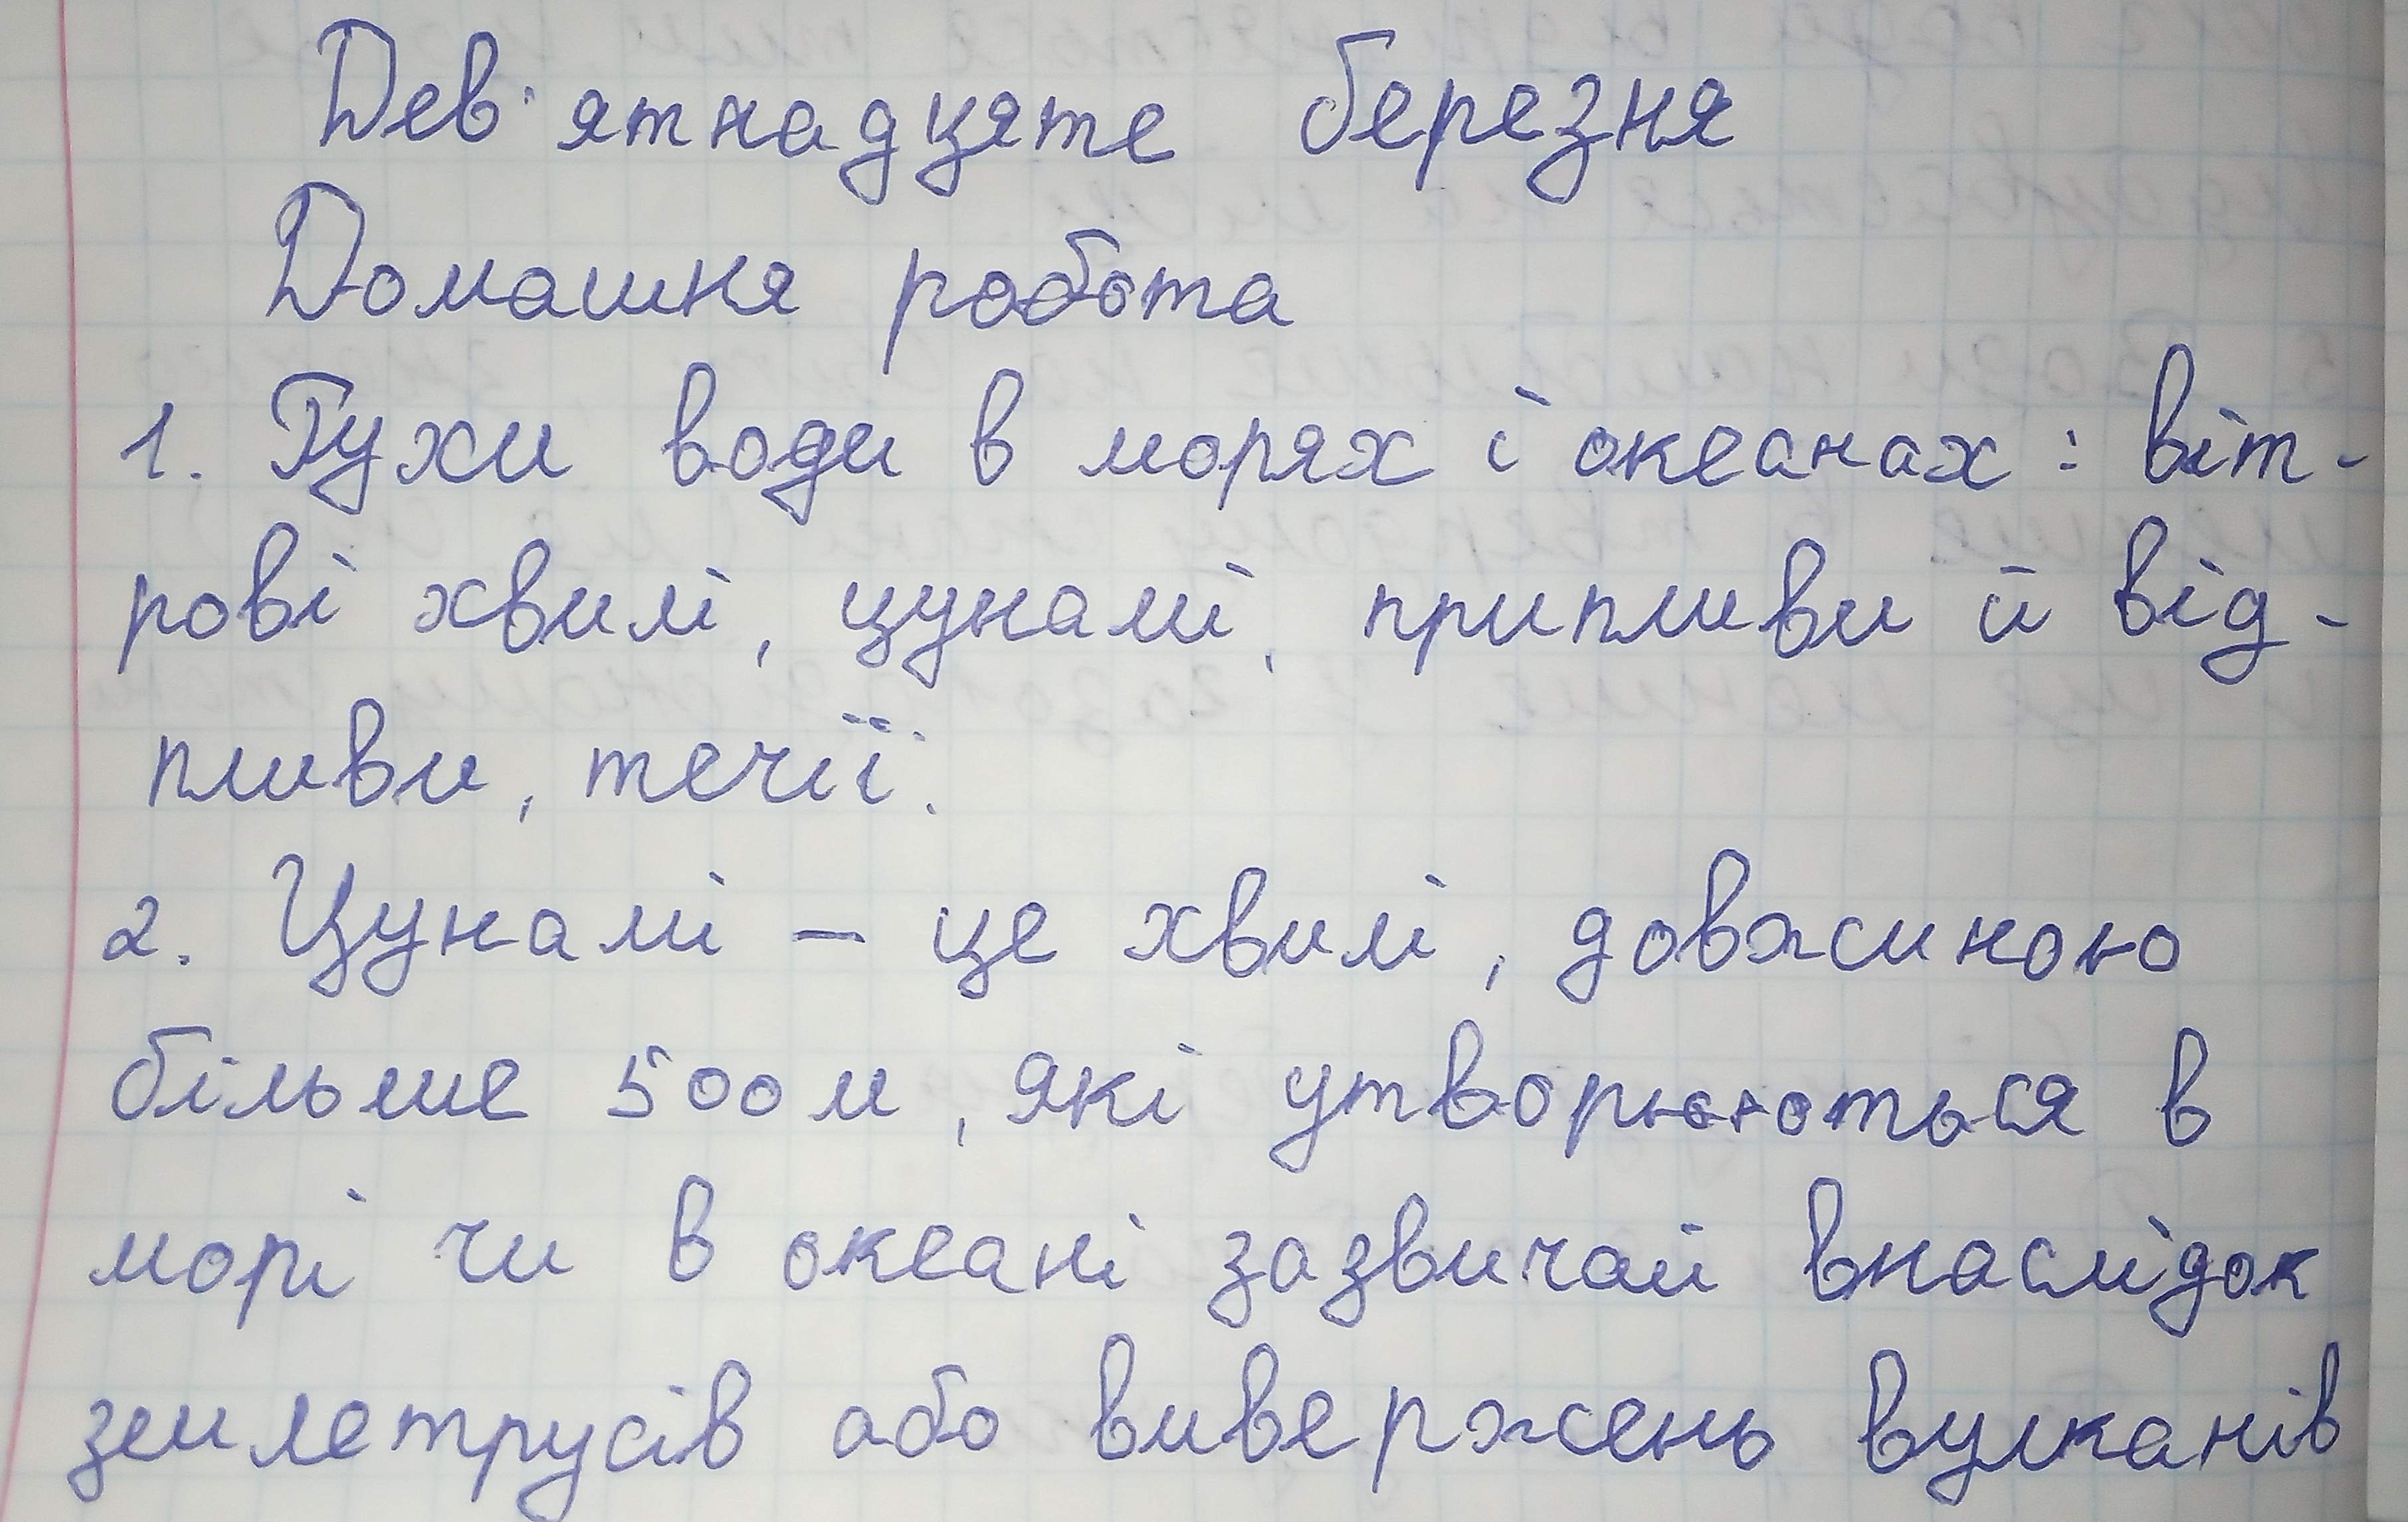 Дев'ятнадцяте березня
Домашня робота
1. Рухи води в морях і океанах: віт-
рові хвилі, цунамі, припливи й від-
пливи, течії.
2. Цунамі – це хвилі, довжиною
більше 500 м, які утворюються в
морі чи в океані зазвичай внаслідок
землетрусів або вивержень вулканів